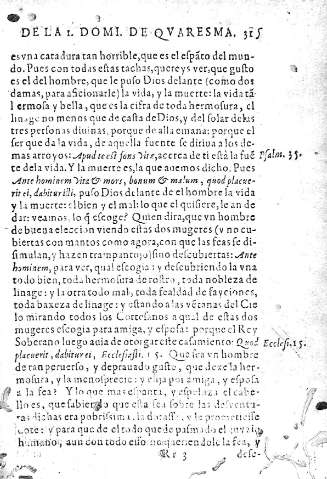 DE LA I. DOMI. DE QVARESMA. 315
es vna catadura tan horrible, que es el espãto del mun-
do. Pues con todas estas tachas, quereys ver, que gusto
es el del hombre, que le puso Dios delante (como dos
damas, para aficionarle) la vida, y la muerte: la vida tã
hermosa y bella, que es la cifra de toda hermosura, el
linage no menos que de casa de Dios, y del solar de las
tres personas diuinas, porque de alli emana: porque el
ser que da la vida, de aquella fuente se diriua a los de-
mas arroyos: Apud te est fons vitæ, acerca de ti está la fuē
te de la vida. Y la muerte es, la que auemos dicho. Pues
Psalm. 35.
Ante hominem vita & mors, bonum & malum, quod placue-
rit ei, dabitur illi. puso Dios delante de el hombre la vida
y la muerte: el bien y el mal: lo que el quisiere, le an de
dar: veamos, lo q̃ escoge? Quien dira, que vn hombre
de buena eleccion viendo estas dos mugeres (y no cu-
biertas con mantos como agora, con que las feas se di-
simulan, y hazen trampantojo) sino descubiertas: Ante
hominem, para ver, qual escogia: y descubriendo la vna
todo bien, toda hermosura de rostro, toda nobleza de
linage: y la otra todo mal, toda fealdad de fayciones,
toda baxeza de linage: y estando a las vẽtanas del Cie
lo mirando todos los Cortesanos a qual de estas dos
mugeres escogia para amiga, y esposa: porque el Rey
Soberano luego auia de otorgar este casamiento: Quod
placuerit, dabitur ei, Ecclesiast. 15. Que sea vn hombre
Ecclesi. 15.
de tan peruerso, y deprauado gusto, que dexe la her-
mosura, y la menosprecie: y elija por amiga, y esposa
a la fea? Y lo que mas espanta, y espeluza el cabe-
llo es, que sabiendo que esta fea sobre las desuentu-
ras dichas era pobrissima, la dotasse, y le prometiesse
dote: y para que de el todo que de pasmado el juyzio
humano; aun con todo esso no queriendole la fea, y
Rr 3 dese-